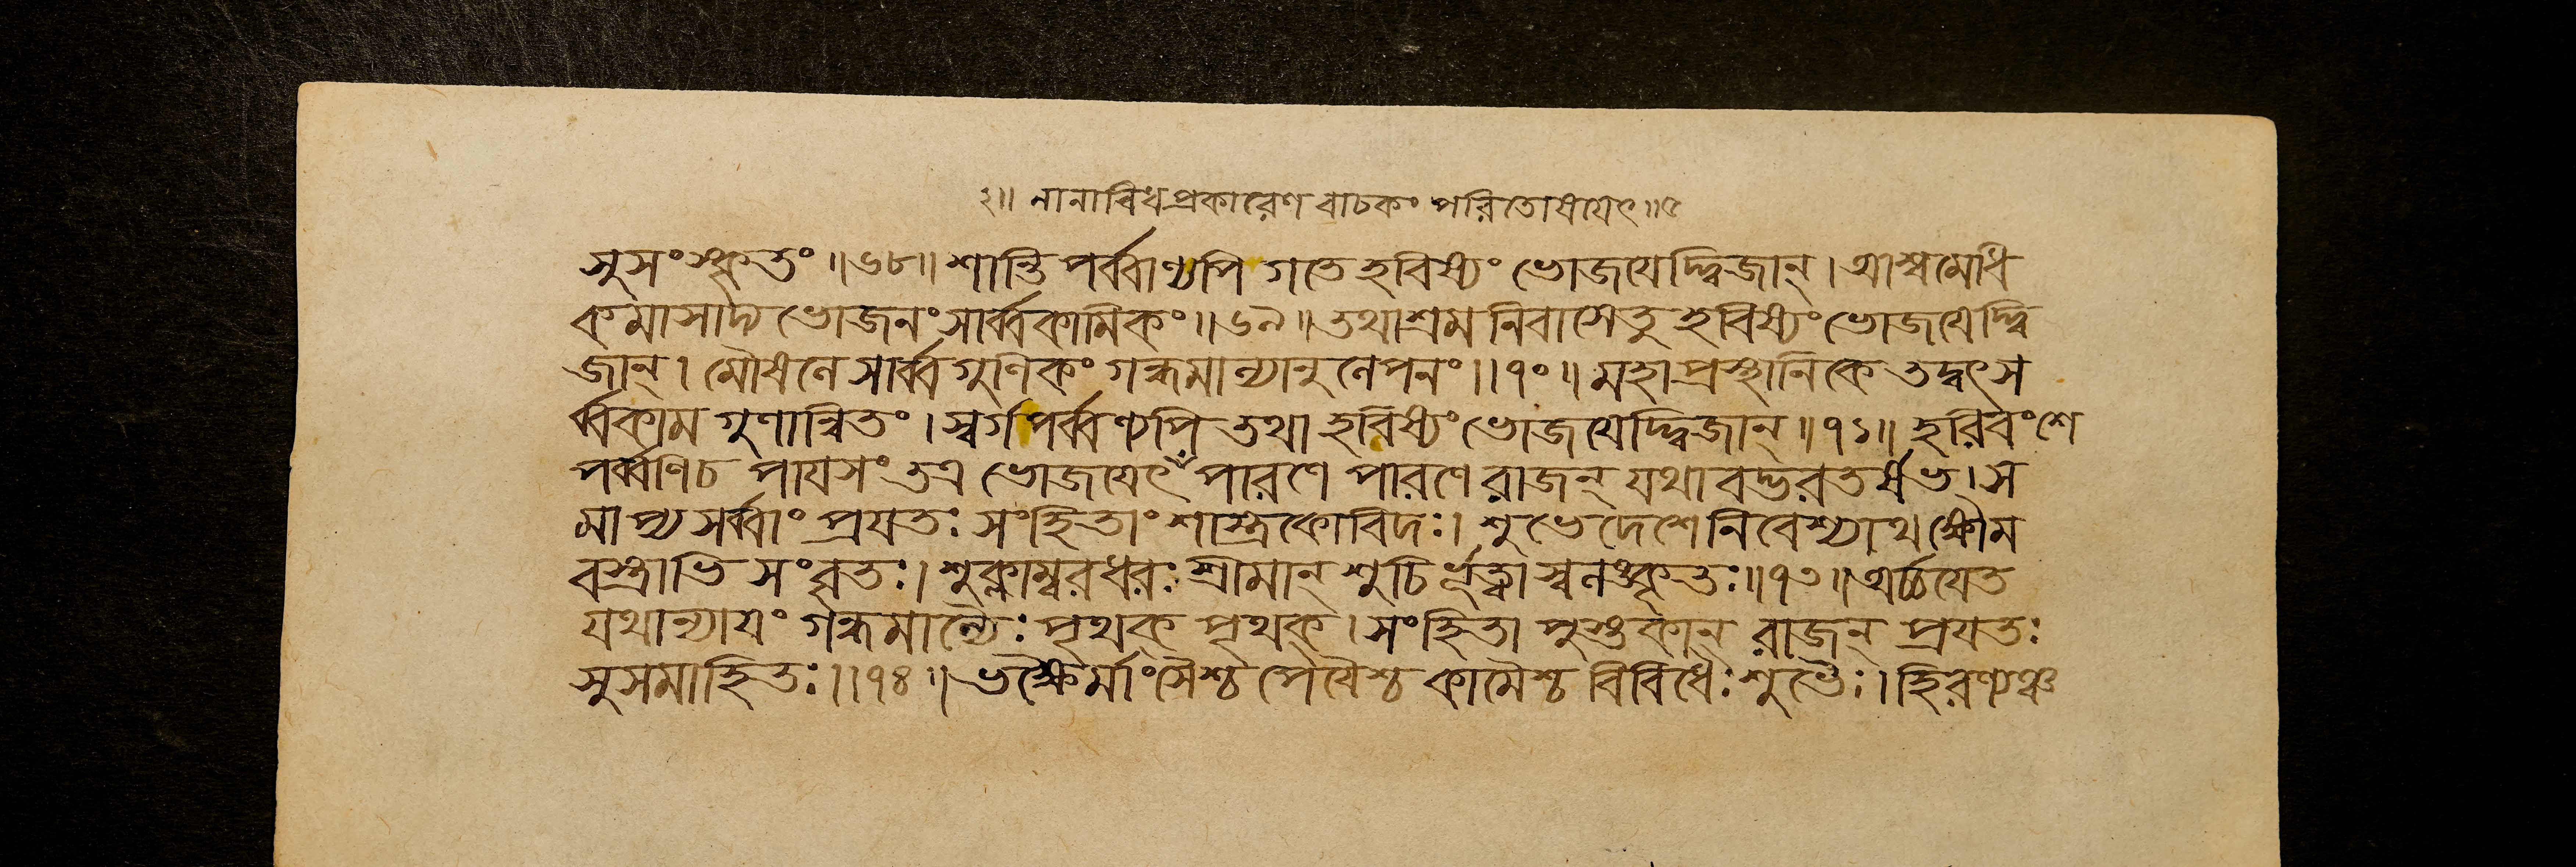 ২॥ নানাবিধপ্রকারেণ বাচকং পরিতোষয়েৎ॥৫
সুসংস্কৃতং॥৬৮॥ শান্তিপর্ব্বাণ্যপি গতে হবিষ্যং ভোজয়েদ্দ্বিজান্। আশ্বমেধি
কমাসাদ্য ভোজনং সার্ব্বকামিকং॥৬৯॥ তথাশ্রমনিবাসেতু হবিষ্যং ভোজয়েদ্দ্বি
জান্। মৌষলে সার্ব্বগুণিকং গন্ধমাল্যানুলেপনং॥৭০॥ মহাপ্রস্থানিকে তদ্বৎস
র্ব্বকামগুণান্বিতং। স্বর্গপর্ব্বণ্যপি তথা হবিষ্যং ভোজয়েদ্দ্বিজান্॥৭১॥ হরিবংশে
পর্ব্বণিচ পায়সং তত্র ভোজয়েৎ পারণে পারণে রাজন্ যথাবদ্ভরতর্ষভ। স
মাপ্য সর্ব্বাং প্রযতঃ সংহিতাং শাস্ত্রকোবিদঃ। শুভেদেশে নিবেশ্যাথ ক্ষৌম
বস্ত্রাভিসংবৃতঃ। শুক্লাম্বরধরঃ শ্রীমান্ শুচির্ভূত্বা স্বলঙ্কৃতঃ॥৭৩॥ অর্চ্চয়েত
যথান্যায়ং গন্ধমাল্যৈঃ পৃথক্ পৃথক্। সংহিতা পুস্তকান্ রাজন্ প্রযতঃ
সুসমাহিতঃ॥৭৪॥ ভক্ষ্যৈর্মাংসৈশ্চ পেয়ৈশ্চ কামৈশ্চ বিবিধৈঃ শুভৈঃ। হিরণ্যঞ্চ